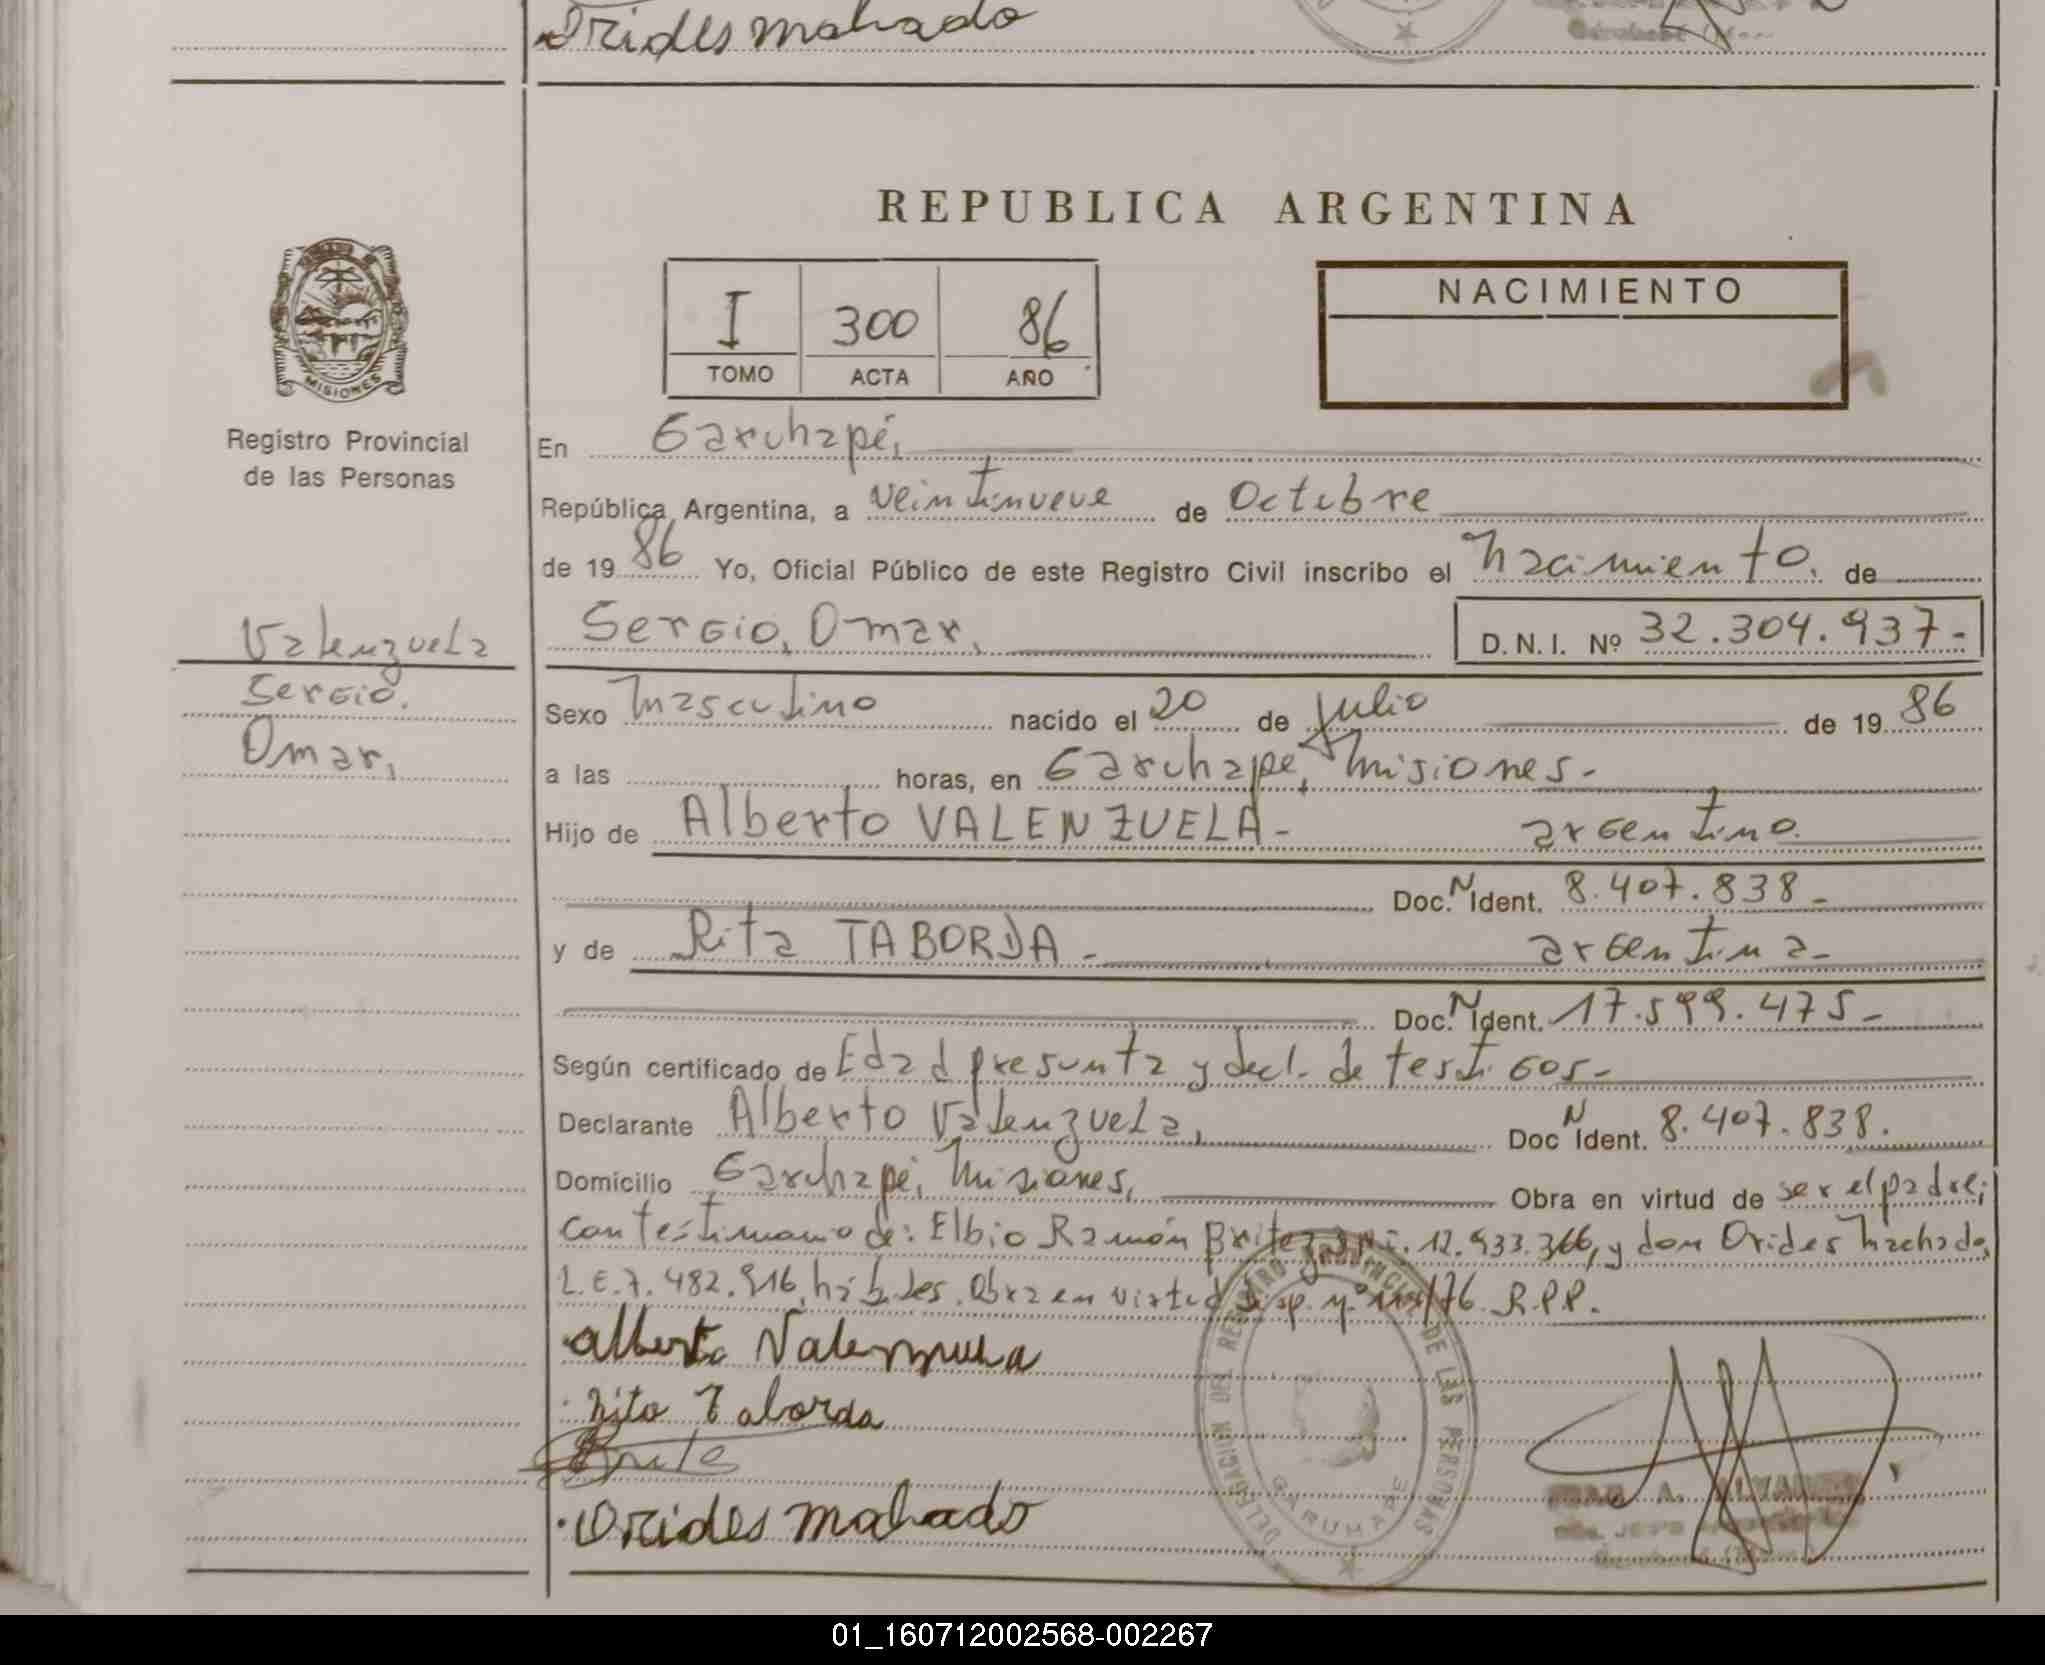 Orides machado
REPUBLICA ARGENTINA
I 300 86
TOMO ACTA AÑO
NACIMIENTO
MISIONES
Registro Provincial
de las Personas
En Garuhapé,
República Argentina, a veintinueve de Octubre
de 19 86 Yo, Oficial Público de este Registro Civil inscribo el nacimiento. de
Sergio, Omar, D.N.I. Nº 32.304.937-
Valenzuela
Sergio.
Omar,
Sexo masculino nacido el 20 de julio de 19 86
a las horas, en Garuhape, misiones-
Hijo de Alberto VALENZUELA- argentino.
Doc. N Ident. 8.407.838-
y de Rita TABORDA- argentina-
Doc. N Ident. 17.599.475-
Según certificado de Edad presunta y decl. de testigos-
Declarante Alberto Valenzuela, Doc N Ident. 8.407.838.
Domicilio Garuhapé, Misiones, Obra en virtud de ser el padre;
con testimonio de: Elbio Ramón Britez 12.933.366, y don Orides Machado,
L.E.7.482.916, hábiles. Obra en virtud Disp. nº /76 R.P.P.
alberto Valenzuela
Rita Taborda
Orides machado
DELEGACION DEL REGISTRO PROVINCIAL DE LAS PERSONAS
GARUHAPE
A. ALVAREZ
01_160712002568-002267